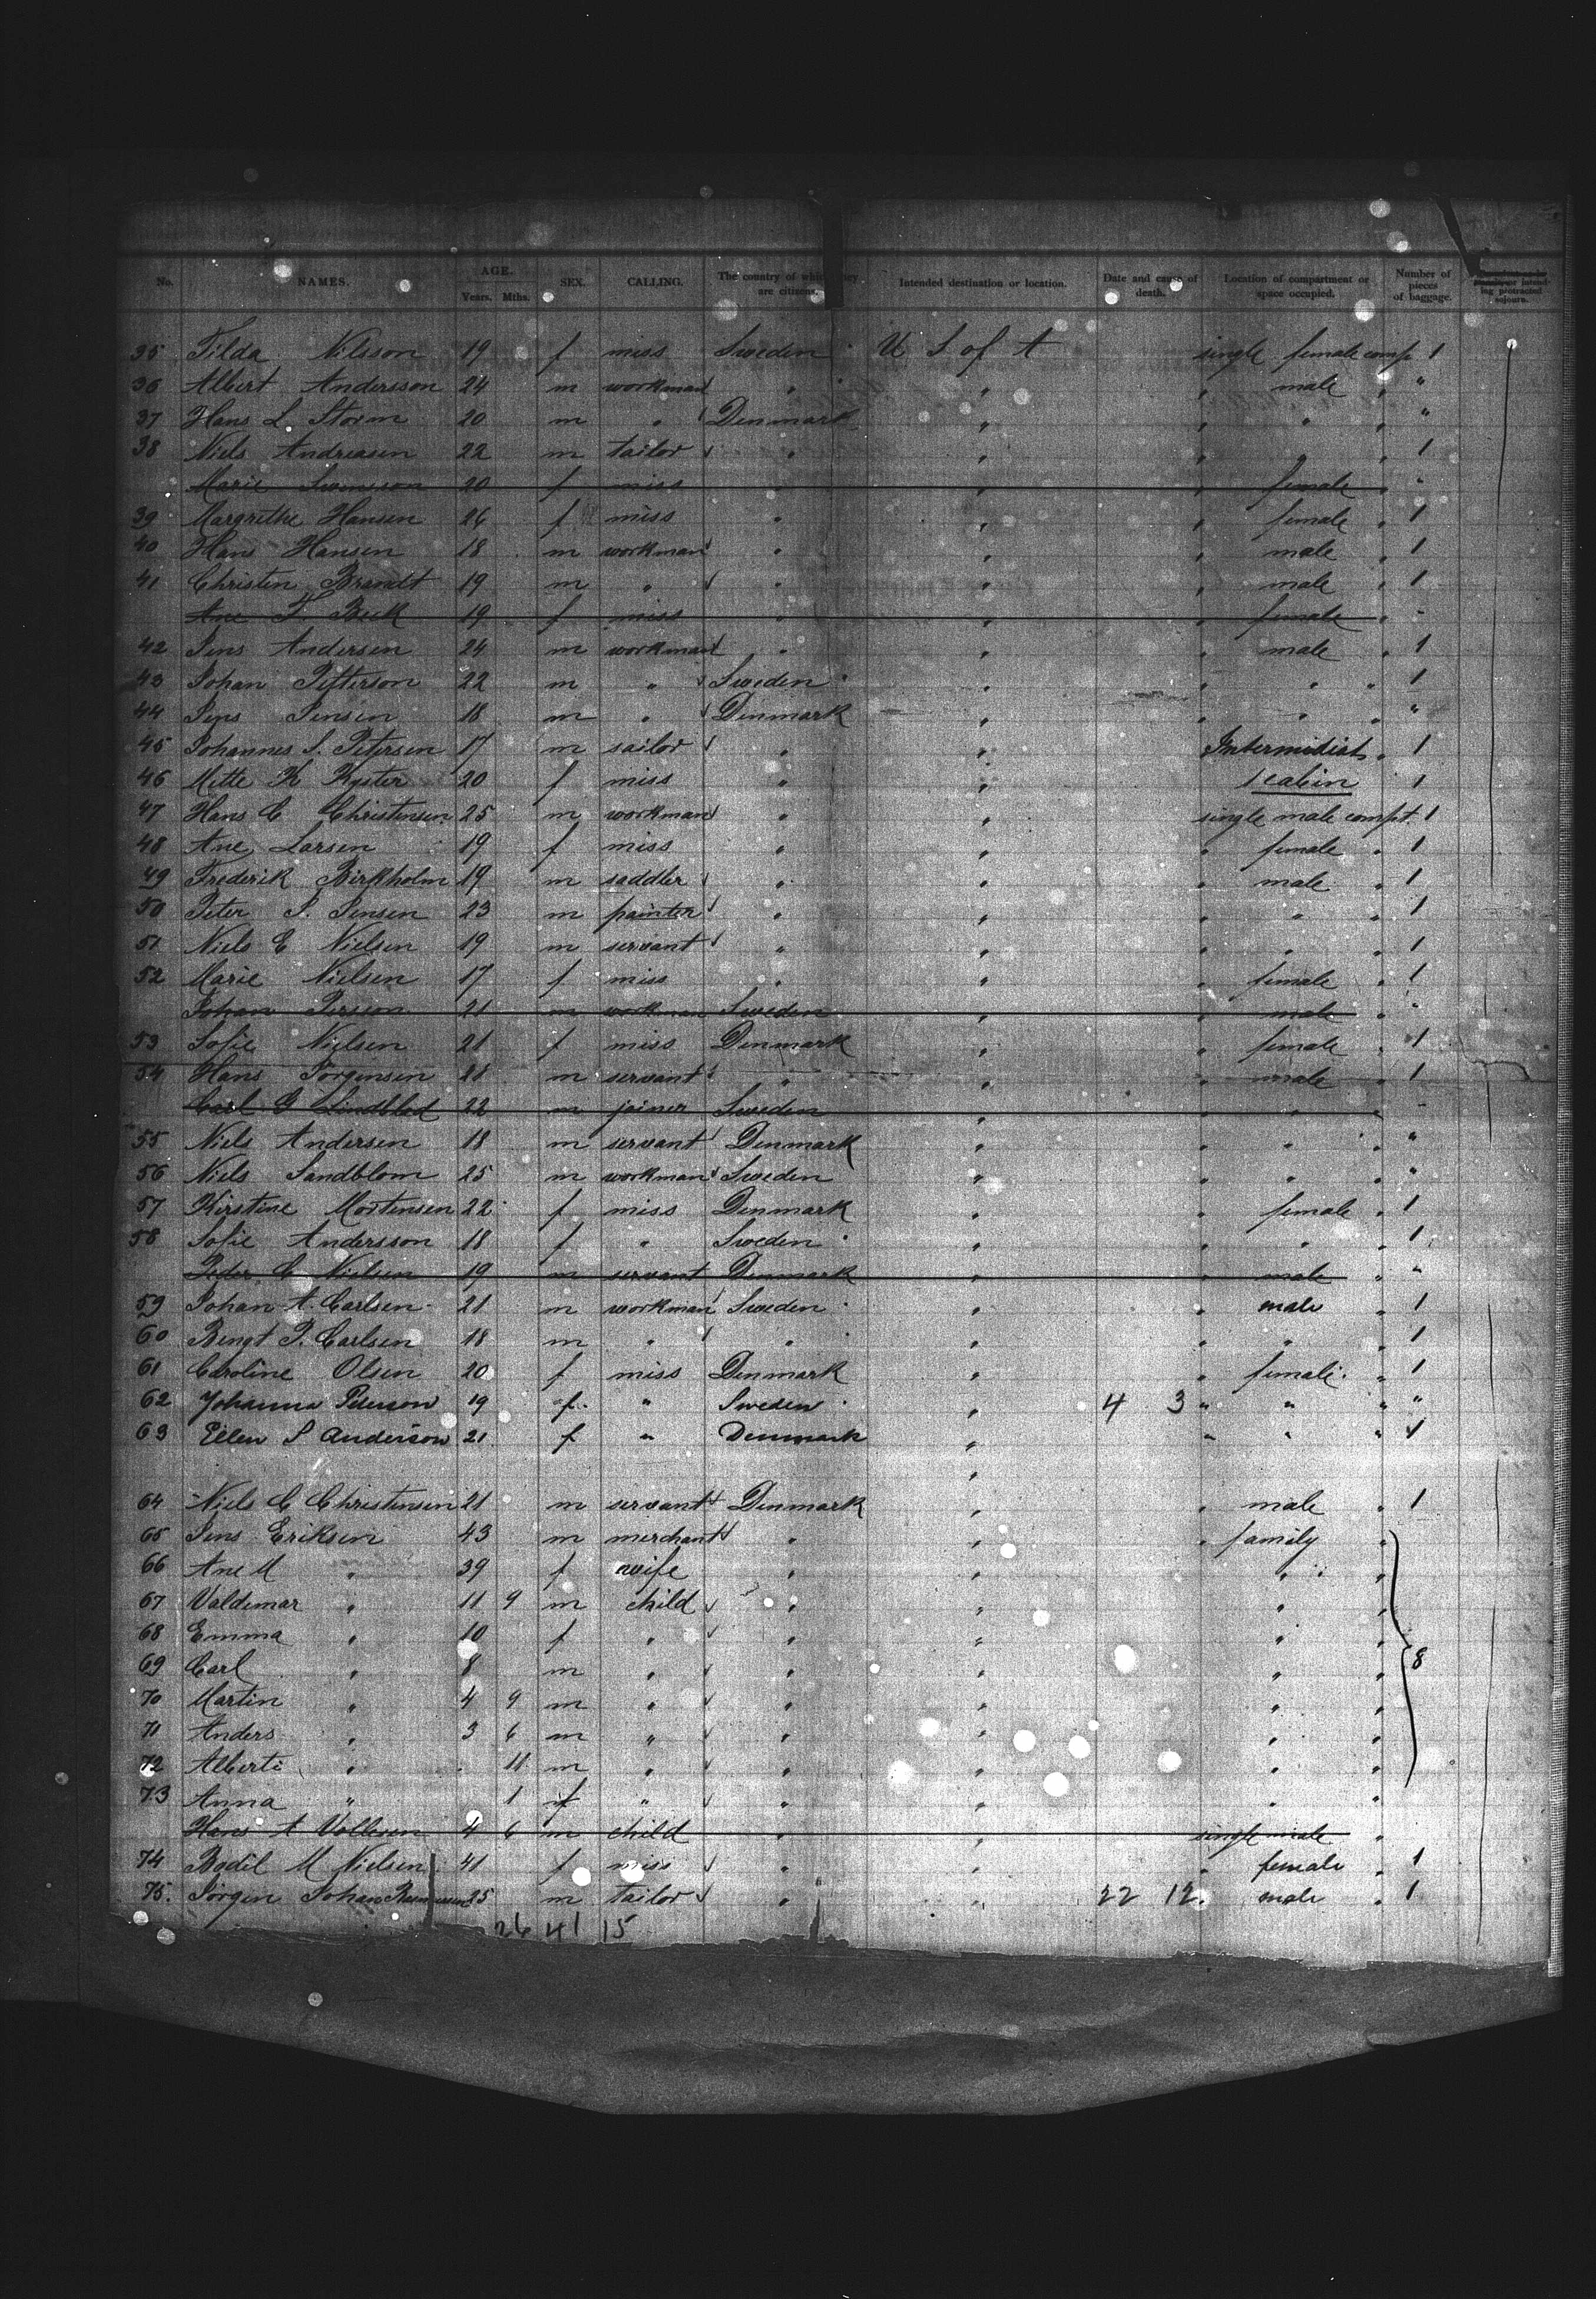 No. NAMES. AGE. Years. Mths. SEX. CALLING. The country of which they are citizens. Intended destination or location. Date and cause of death. Location of compartment or space occupied. Number of pieces of baggage.
35 Tilda Nilsson 19 f miss Sweden U S of A single female comp. 1
36 Albert Andersson 24 m workman " " " male " "
37 Hans L. Storm 20 m " Denmark " " " " "
38 Niels Andreasen 22 m tailor " " " " " 1
Marie Svensson 20 f miss " " " female " "
39 Margrethe Hansen 26 f miss " " " female " 1
40 Hans Hansen 18 m workman " " " male " 1
41 Christen Brandt 19 m " " " " male " 1
Ane F. Beck 19 f miss " " " female " "
42 Jens Andersen 24 m workman " " " male " 1
43 Johan Petterson 22 m " Sweden " " " " 1
44 Jens Jensen 18 m " Denmark " " " " "
45 Johannes J. Petersen 17 m sailor " " Intermediat " 1
46 Mette K Kyster 20 f miss " " 1 cabin 1
47 Hans C Christensen 25 m workman " " single male compt. 1
48 Ane Larsen 19 f miss " " " female " 1
49 Frederik Birkholm 19 m saddler " " " male " 1
50 Peter S. Jensen 23 m painter " " " " " 1
51 Niels E Nielsen 19 m servant " " " " " 1
52 Marie Nielsen 17 f miss " " " female " 1
Johan Persson 21 m workman Sweden " " male " "
53 Sofie Nielsen 21 f miss Denmark " " female " 1
54 Hans Jørgensen 21 m servant " " " male " 1
Carl G Lindblad 22 m joiner Sweden " " " "
55 Niels Andersen 18 m servant Denmark " " " " "
56 Niels Sandblom 25 m workman Sweden " " " " "
57 Kirstine Mortensen 22 f miss Denmark " " female " 1
58 Sofie Andersson 18 f " Sweden " " " " 1
Peder C Nielsen 19 m servant Denmark " " male " "
59 Johan A. Carlsen 21 m workman Sweden " " male " 1
60 Bengt P. Carlsen 18 m " " " " " " 1
61 Caroline Olsen 20 f miss Denmark " " female " 1
62 Johanna Peterson 19 f " Sweden " 4 3 " " " "
63 Ellen S Anderson 21 f " Denmark " " " " 1
"
64 Niels C Christensen 21 m servant Denmark " " male " 1
65 Jens Eriksen 43 m merchant " " " family "
66 Ane M " 39 f wife " " " "
67 Valdemar " 11 9 m child " " " "
68 Emma " 10 f " " " " "
69 Carl " 8 m " " " " " 8
70 Martin " 4 9 m " " " " "
71 Anders " 3 6 m " " " " "
72 Alberti " 11 m " " " " "
73 Anna " 1 f " " " " "
Hans A Vollesen 4 6 m child " " single male "
74 Bodil M Nielsen 41 f miss " " " female " 1
75. Jørgen Johan Rasmussen 25 m tailor " " 22 12. male " 1
26 41 15